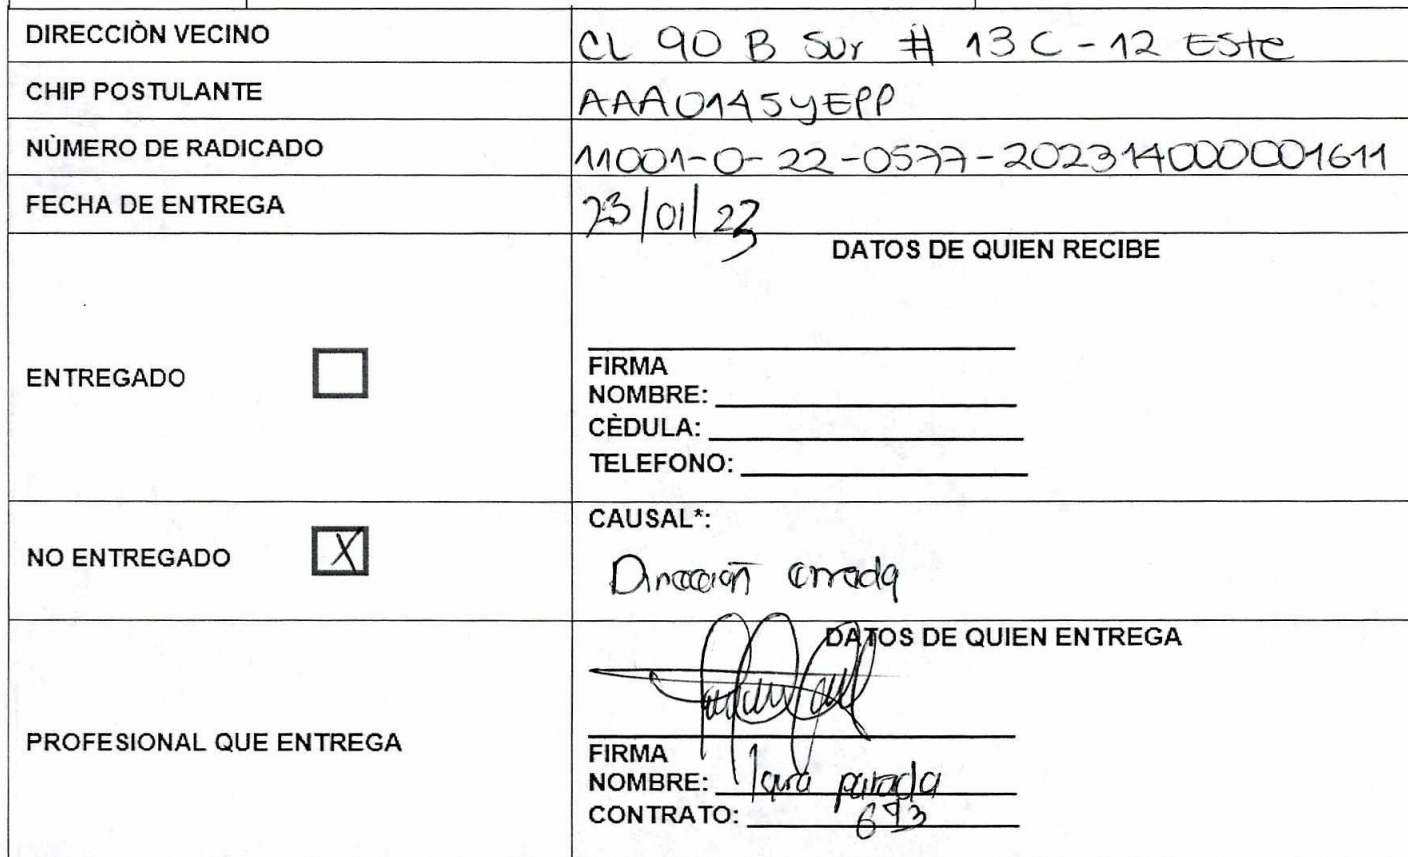 DIRECCIÒN VECINO CL 90 B Sur # 13 C - 12 Este
CHIP POSTULANTE AAA0145YEPP
NÙMERO DE RADICADO 11001-0-22-0577-202314000001611
FECHA DE ENTREGA 23/01/23
DATOS DE QUIEN RECIBE
ENTREGADO
FIRMA
NOMBRE:
CÈDULA:
TELEFONO:
NO ENTREGADO X
CAUSAL*:
Dirección errada
DATOS DE QUIEN ENTREGA
PROFESIONAL QUE ENTREGA
FIRMA
NOMBRE: parada
CONTRATO: 693